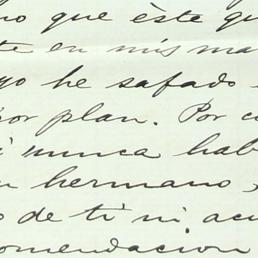 no que èste qu
te en mis ma
yo he safado
or plan. Por c
i nunca hab
u hermano,
o de ti ni acu
omendacion